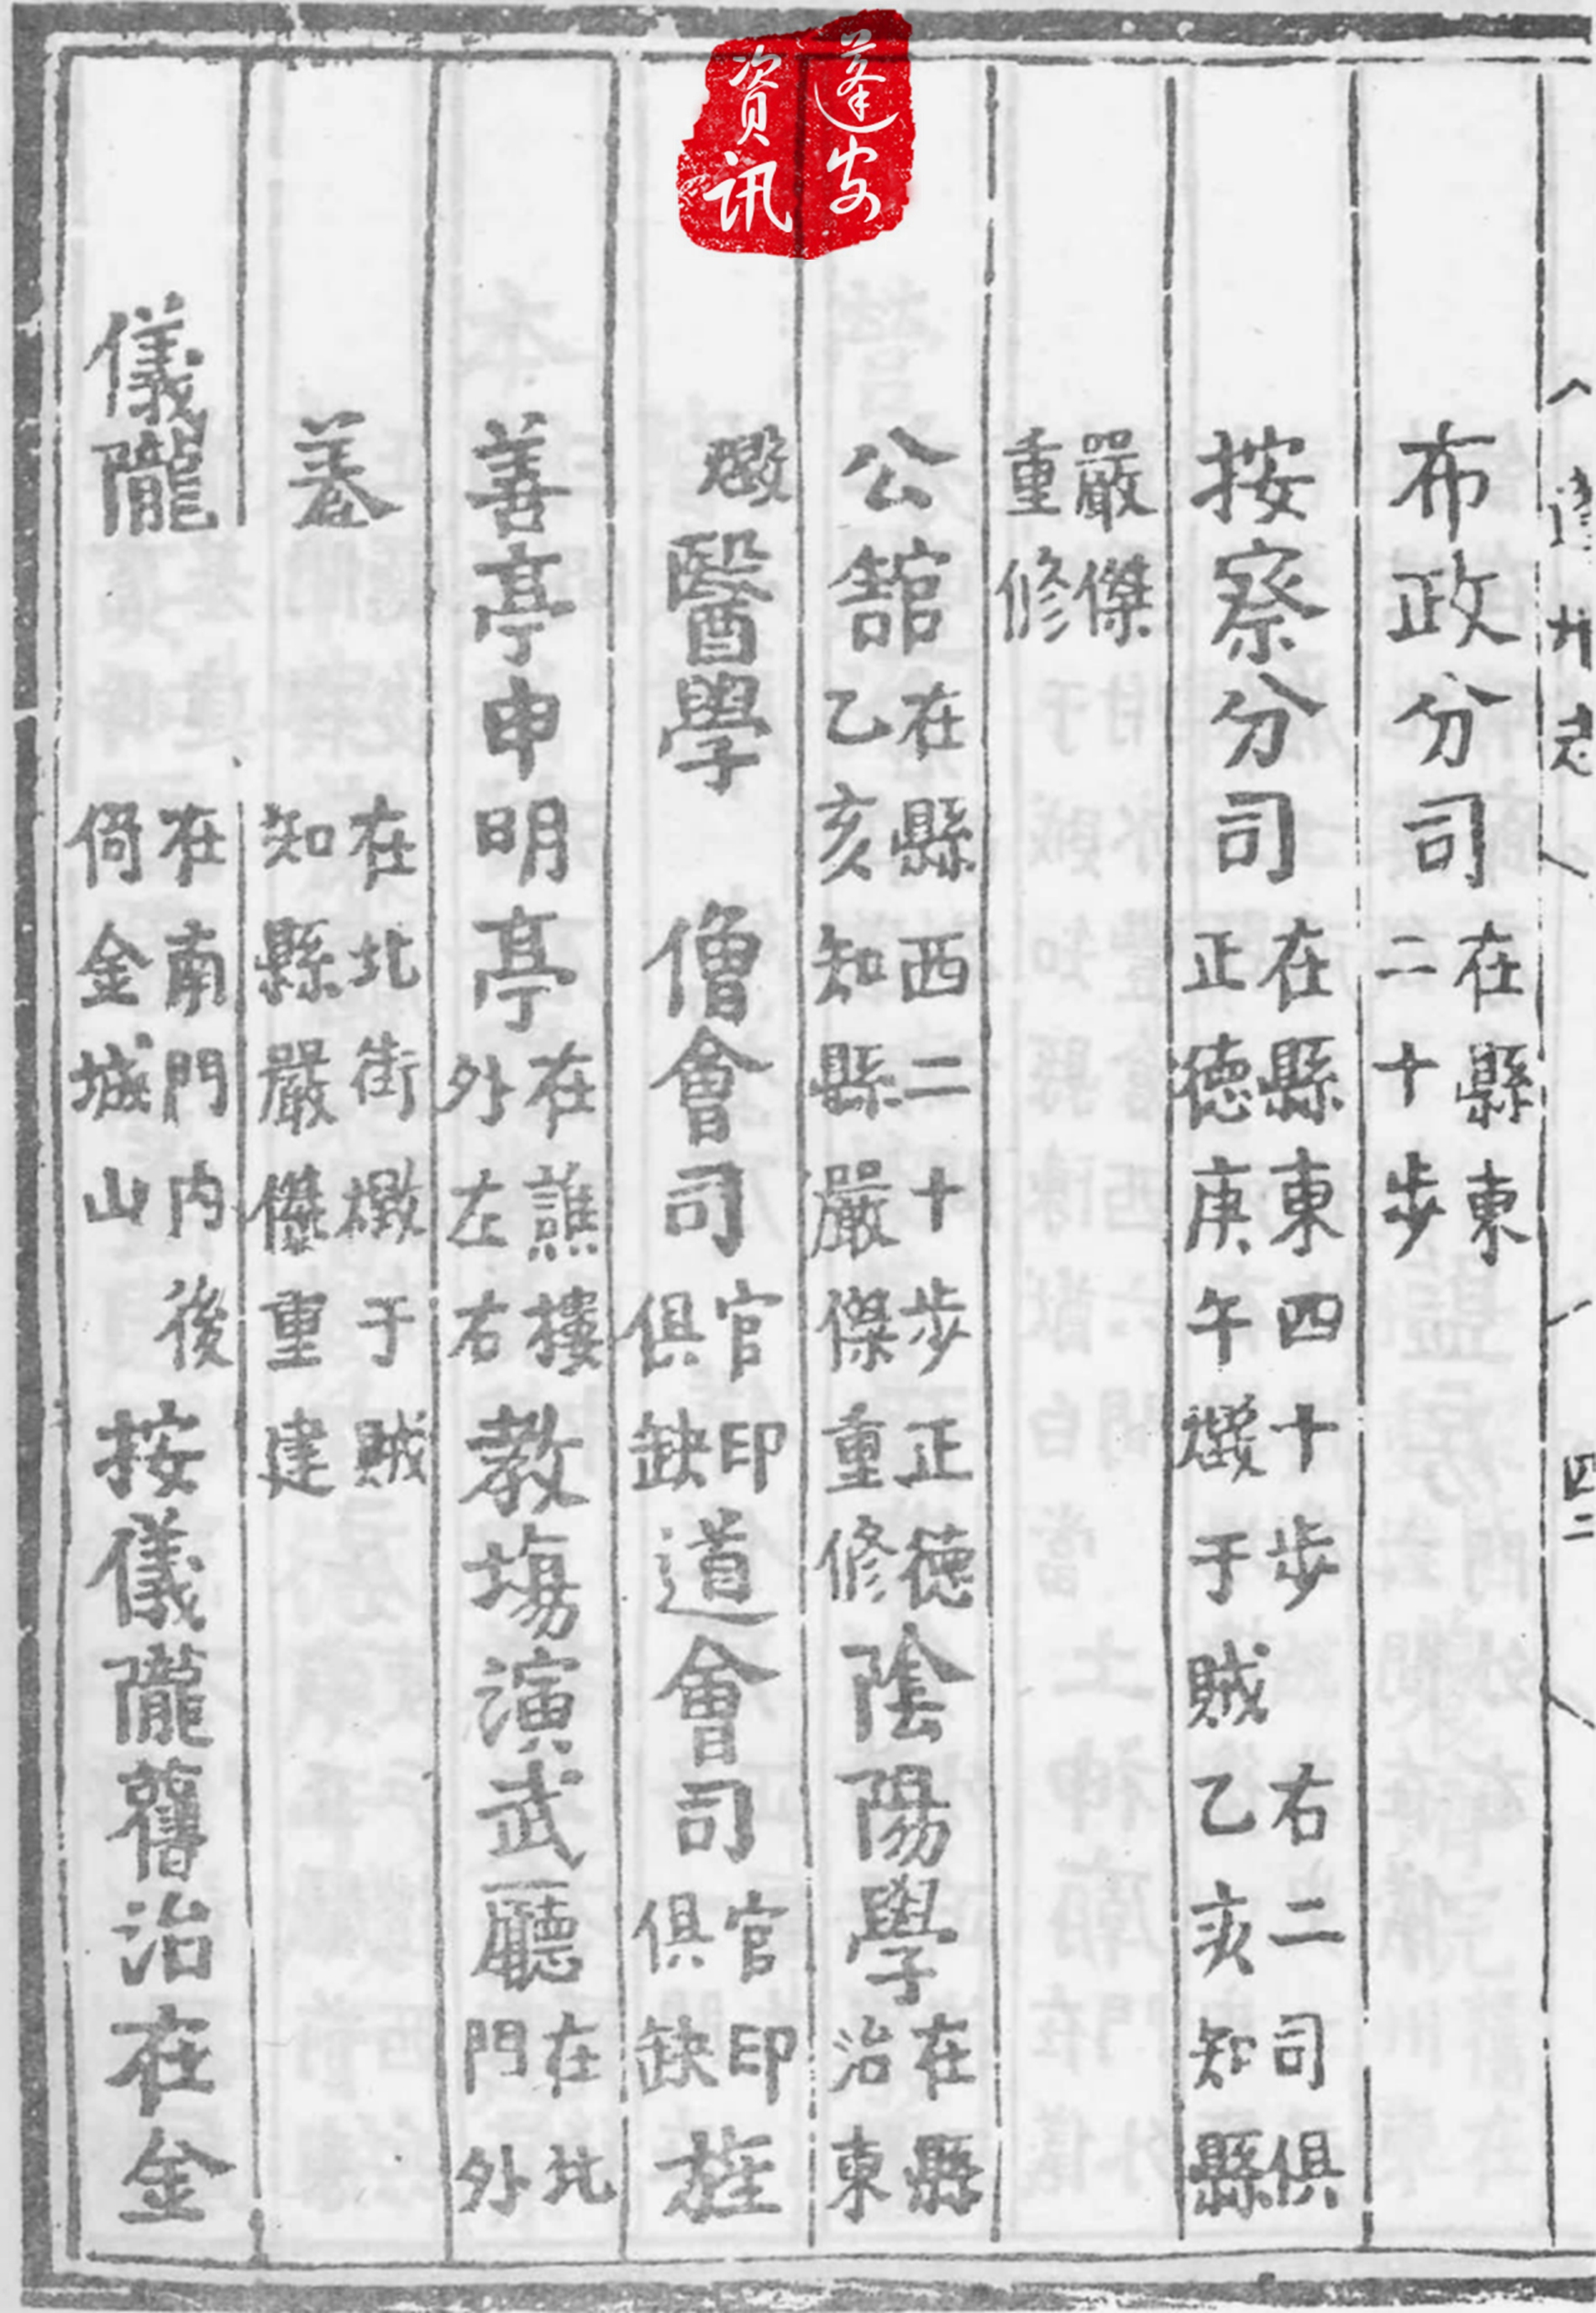 蓬安
資訊
蓬州志
四二
布政分司 在縣東二十步
按察分司 在縣東四十步 右二司俱正德庚午燬于賊乙亥知縣
嚴傑重修
公舘 在縣西二十步正德乙亥知縣嚴傑重修 陰陽學 在縣治東
醫學 僧會司 官印俱缺 道會司 官印俱缺 旌
善亭申明亭 在譙樓外左右 教塲演武廳 在北門外
在北街燬于賊知縣嚴傑重建
儀隴 在南門内後倚金城山 按儀隴舊治在金